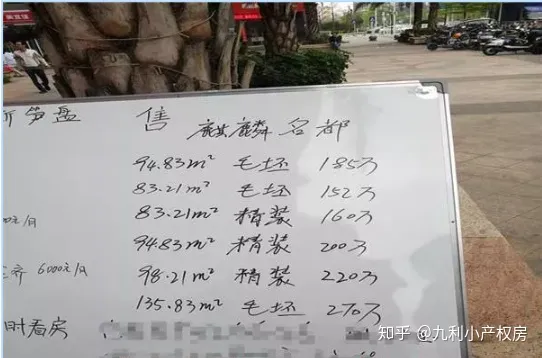 笋盘 售 麒麟名都
94.83m² 毛坯 185万
83.21m² 毛坯 152万
元/月 83.21m² 精装 160万
94.83m² 精装 200万
齐 6000元/月 98.21m² 精装 220万
135.83m² 毛坯 270万
时看房
知乎 @九利小产权房